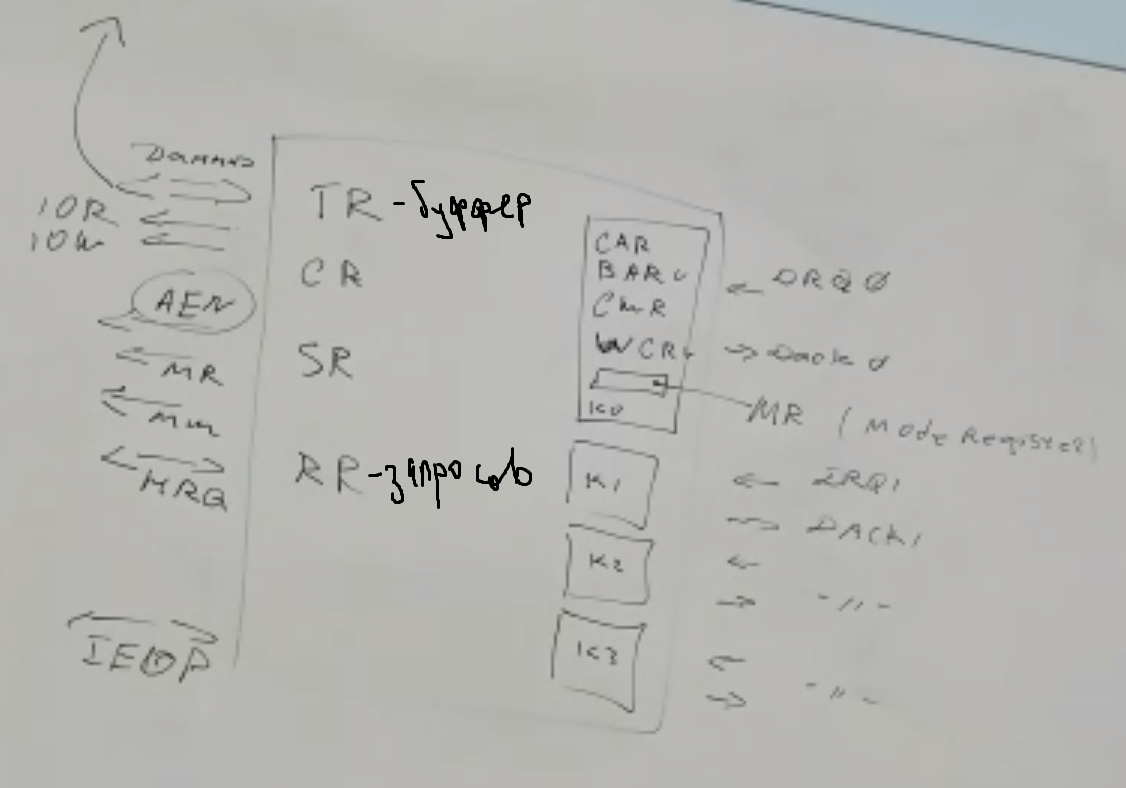 Данные
IOR
IOW
AEN
MR
MW
MRQ
IEOP
TR - буффер
CR
SR
RR - запросов
CAR
BAR
CWR
WCR
K0
K1
K2
K3
DRQ0
Dack 0
MR (Mode Register)
IRQ1
DACK1
- // -
- // -